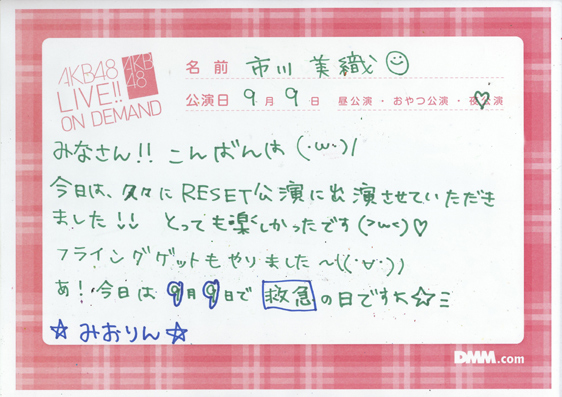 AKB48
LIVE!!
ON DEMAND
AKB
48
名前 市川美織
公演日 9月9日 昼公演・おやつ公演・夜公演
みなさん!! こんばんは (・ω・)/
今日は、久々にRESET公演に出演させていただき
ました!! とっても楽しかったです(>ω<)♡
フライングゲットもやりました~!((・∀・))
あ!今日は9月9日で救急の日ですた☆ミ
☆みおりん☆
DMM.com